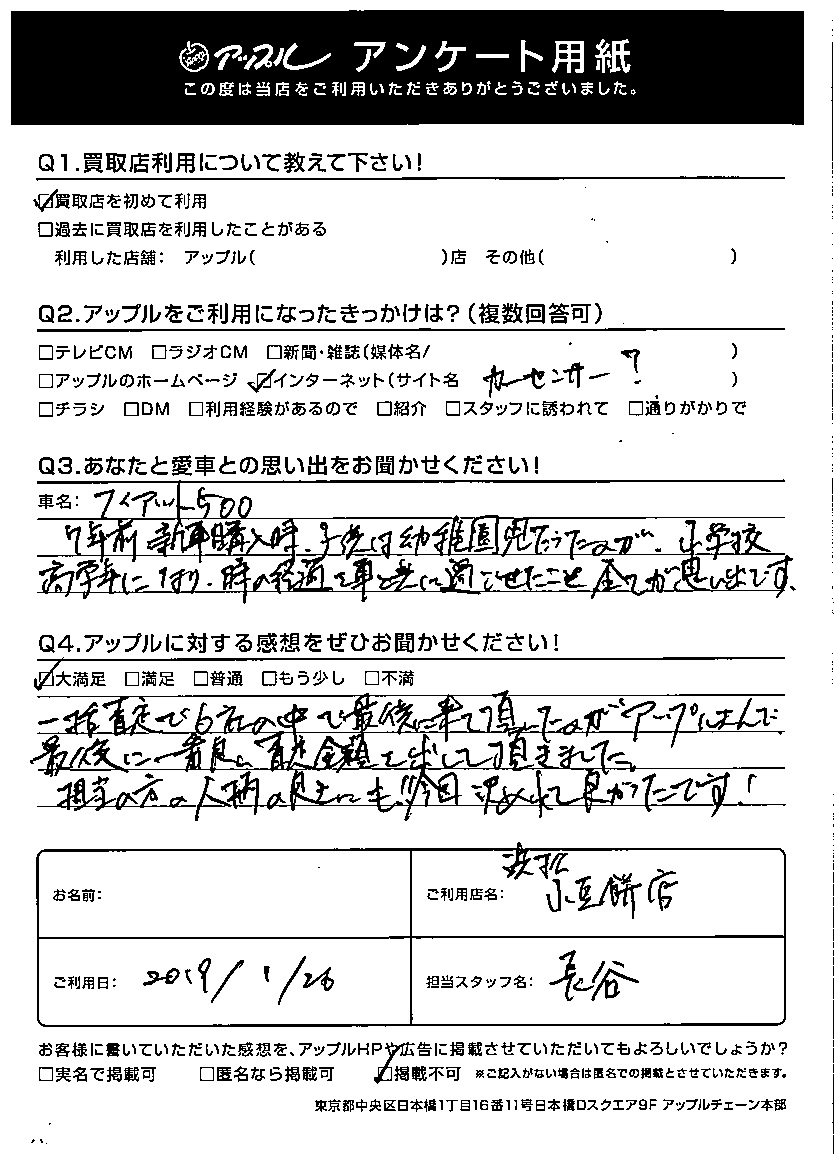 アップル アンケート用紙
この度は当店をご利用いただきありがとうございました。
Q1.買取店利用について教えて下さい!
☑買取店を初めて利用
□過去に買取店を利用したことがある
利用した店舗: アップル( )店 その他( )
Q2.アップルをご利用になったきっかけは?(複数回答可)
□テレビCM □ラジオCM □新聞・雑誌(媒体名/ )
□アップルのホームページ ☑インターネット(サイト名 カーセンサー? )
□チラシ □DM □利用経験があるので □紹介 □スタッフに誘われて □通りがかりで
Q3.あなたと愛車との思い出をお聞かせください!
車名: フィアット500
7年前 新車購入時、子供は幼稚園児だったのが、小学校
高学年になり、時の経過を車と共に過ごせたこと 全てが思い出です。
Q4.アップルに対する感想をぜひお聞かせください!
☑大満足 □満足 □普通 □もう少し □不満
一括査定で6社の中で最後に来て頂いたのがアップルさんで
最後に一番良い査定金額を出して頂きました。
担当の方の人柄の良さにも!!今回 決めれて良かったです!
お名前:
ご利用店名: 浜松
小豆餅店
ご利用日: 2019/1/26
担当スタッフ名: 長谷
お客様に書いていただいた感想を、アップルHPや広告に掲載させていただいてもよろしいでしょうか?
□実名で掲載可 □匿名なら掲載可 ☑掲載不可 ※ご記入がない場合は匿名での掲載とさせていただきます。
東京都中央区日本橋1丁目16番11号日本橋Dスクエア9F アップルチェーン本部